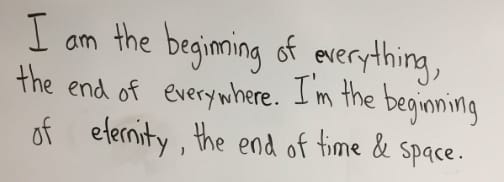 I am the beginning of everything,
the end of everywhere. I'm the beginning
of eternity, the end of time & space.